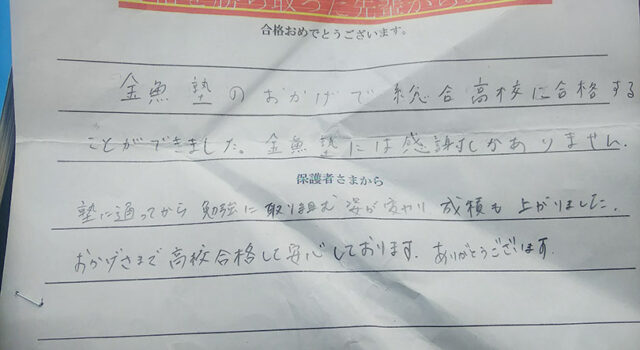 を勝ち取った先輩から
合格おめでとうございます。
金魚塾のおかげで総合高校に合格する
ことができました。金魚塾には感謝しかありません.
保護者さまから
塾に通ってから勉強に取り組む姿が変わり成積も上がりました.
おかげさまで高校合格して安心しております. ありがとうございます.